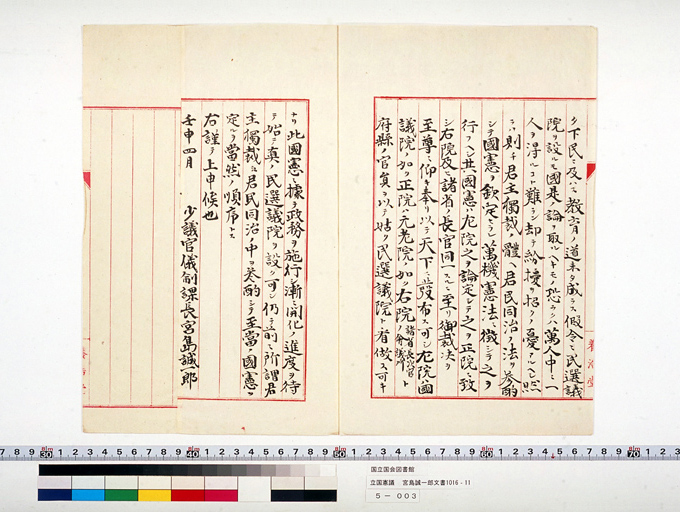 ク下民ニ及ハス教育ノ道未タ成ラス假令ヒ民選議
院ヲ設ルモ國是ノ論ヲ取ルヘキモノ恐クハ萬人中ニ一
人ヲ得ルコ難シ却テ紛擾ヲ招クノ憂アルヘシ然
ラハ則チ君主獨裁ノ體ニ君民同治ノ法ヲ参酌
シテ國憲ヲ欽定セシ萬機憲法ニ徴シテ之ヲ
行フヘシ其國憲ハ左院之ヲ論定シテ之ヲ正院ニ致
シ右院及ヒ諸省ノ長官同一ニ至リ御裁決ヲ
至尊ニ仰キ奉リ以テ天下ニ發布ス可シ左院ハ國
議院ノ如ク正院ハ元老院ノ如ク右院ハ諸省長次官ノ會議ト
府縣ノ官員ヲ以テ姑ク民選議院ト看做ス可キ
ナリ此國憲ニ據テ政務ヲ施行シ漸ニ開化ノ進度ヲ待
テ始テ真ノ民選議院ヲ設ク可シ仍テ前ニ所謂君
主獨裁ニ君民同治ノ中ヲ参酌シテ至當ノ國憲ヲ
定ルヲ當然ノ順序トス
右謹テ上申候也
壬申四月 少議官儀制課長宮島誠一郎
国立国会図書館
立国憲議 宮島誠一郎文書1016-11
5-003